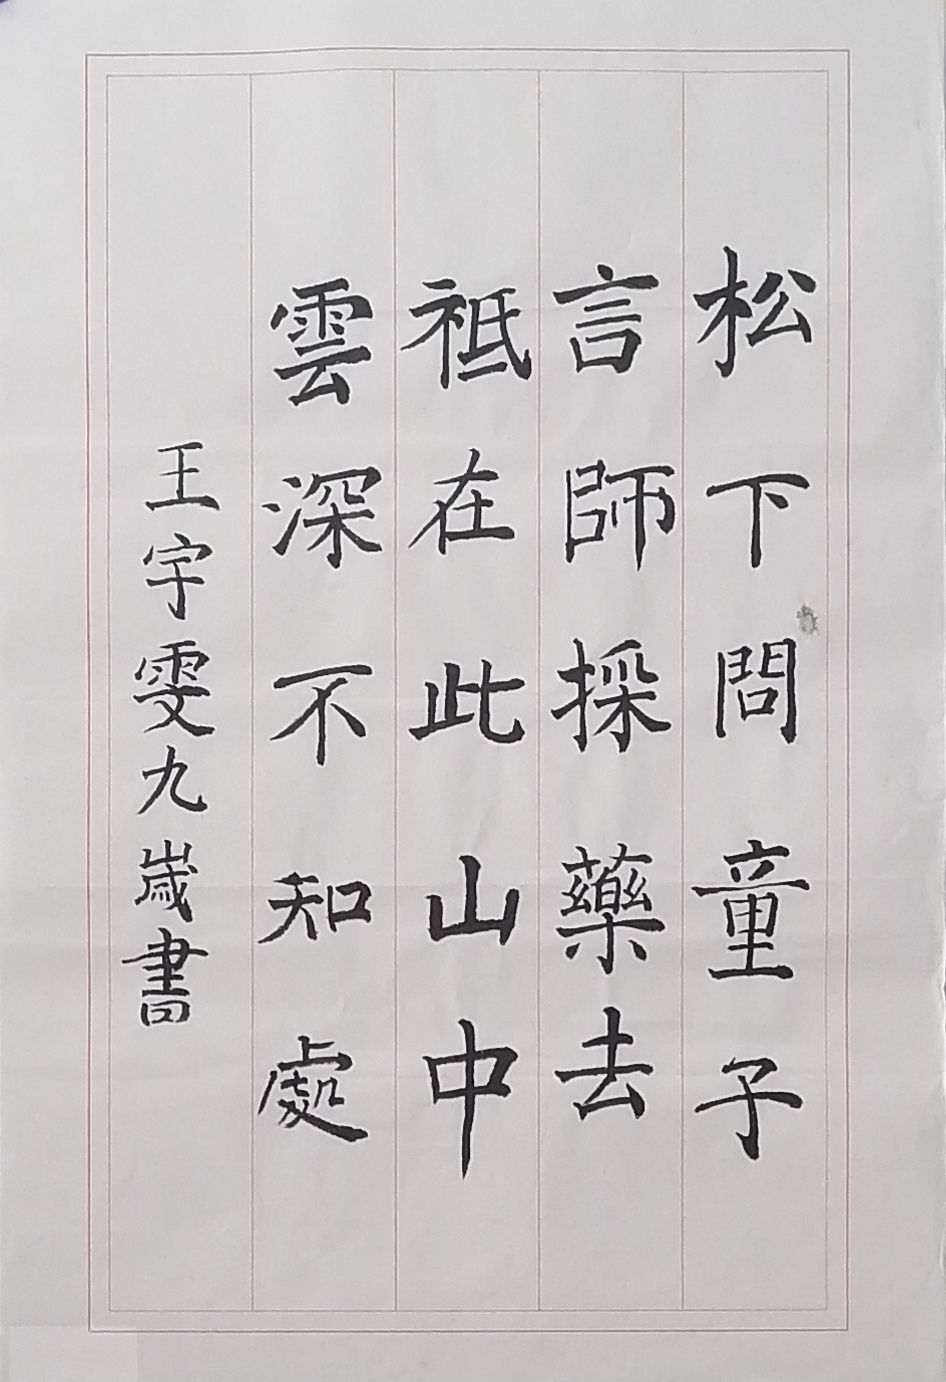 松下問童子
言師採藥去
祗在此山中
雲深不知處
王宇雯九歲書